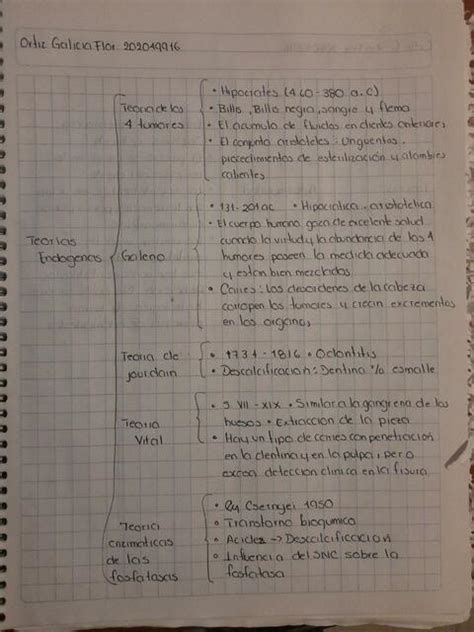 Ortiz Galicia Flor 202049916
Teorias Endogenas
Teoria de los
4 tumores
• Hipocrates (460-380 a.c)
• Bilis, Bilis negra, sangre y flema
• El acumulo de fluidos en dientes anteriores
• El conjunto aristoteles: Unguentos.
procedimentos de esterilización y alambres
calientes
Galeno
• 131-201 ac • Hipocratica-aristotelica
• El cuerpo humano goza de excelente salud
cuando la virtud y la abundancia de los 4
humores poseen la medida adecuada
y estan bien mezclados
• Caries: los desordenes de la cabeza
corropen los tumores y crean excrementos
en los organos
Teoria de
jourdain
• 1734-1816 • Odontitis
• Descalcificacion: Dentina y/o esmalte
Teoria
Vital
• S VII-XIX • Similar a la gangrena de los
huesos • Extraccion de la pieza
• Hay un tipo de caries con penetración
en la dentina y en la pulpa, pero
detección clinica en la fisura
Teoria
enzimaticas
de las
fosfatasas
• Csernyei 1950
• Transtorno bioquimico
• Acidez → Descalcificacion
• Influencia del SNC sobre la
fosfatasa